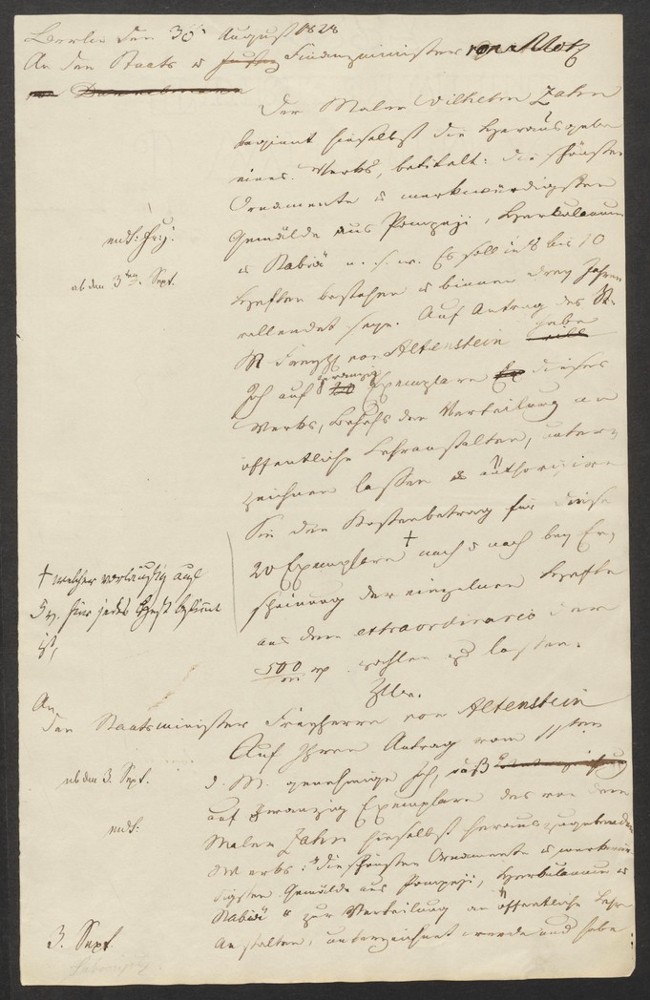 Berlin den 30ten August 1828
An den Staats u Finanzminister von Motz
Der Maler Wilhelm Zahn
beginnt hieselbst die Herausgabe
eines Werks, betitelt: die schönsten
Ornamente u merkwürdigsten
Gemälde aus Pompeji, Herkulanum
u Stabiä u. s. w. Es soll in 8 bis 10
Heften bestehen u binnen drey Jahren
vollendet seyn. Auf Antrag des St.
M Freyh von Altenstein habe
Ich auf zwanzig Exemplare dieses
Werks, behufs der Vertheilung an
öffentliche Lehranstalten, unter-
zeichnen lassen u authorisire
Sie den Kostenbetrag für diese
20 Exemplare † nach u nach bey Er-
scheinung der einzelnen Hefte
aus dem extraordinario der
zahlen zu lassen.
mdt:
ab den 3ten Sept.
† welcher vorläufig auf
für jedes Heft bestimmt
ist,
An
den Staatsminister Freyherrn von Altenstein
Auf Ihren Antrag vom 11ten
d. M. genehmige Ich, daß
auf zwanzig Exemplare des von dem
Maler Zahn hieselbst herauszugebenden
Werks: "die schönsten Ornamente u merkwür-
digsten Gemälde aus Pompeji, Herkulanum u
Stabiä" zur Vertheilung an öffentliche Lehr-
anstalten, unterzeichnet werde und habe
ab den 3. Sept.
mdt:
3. Sept